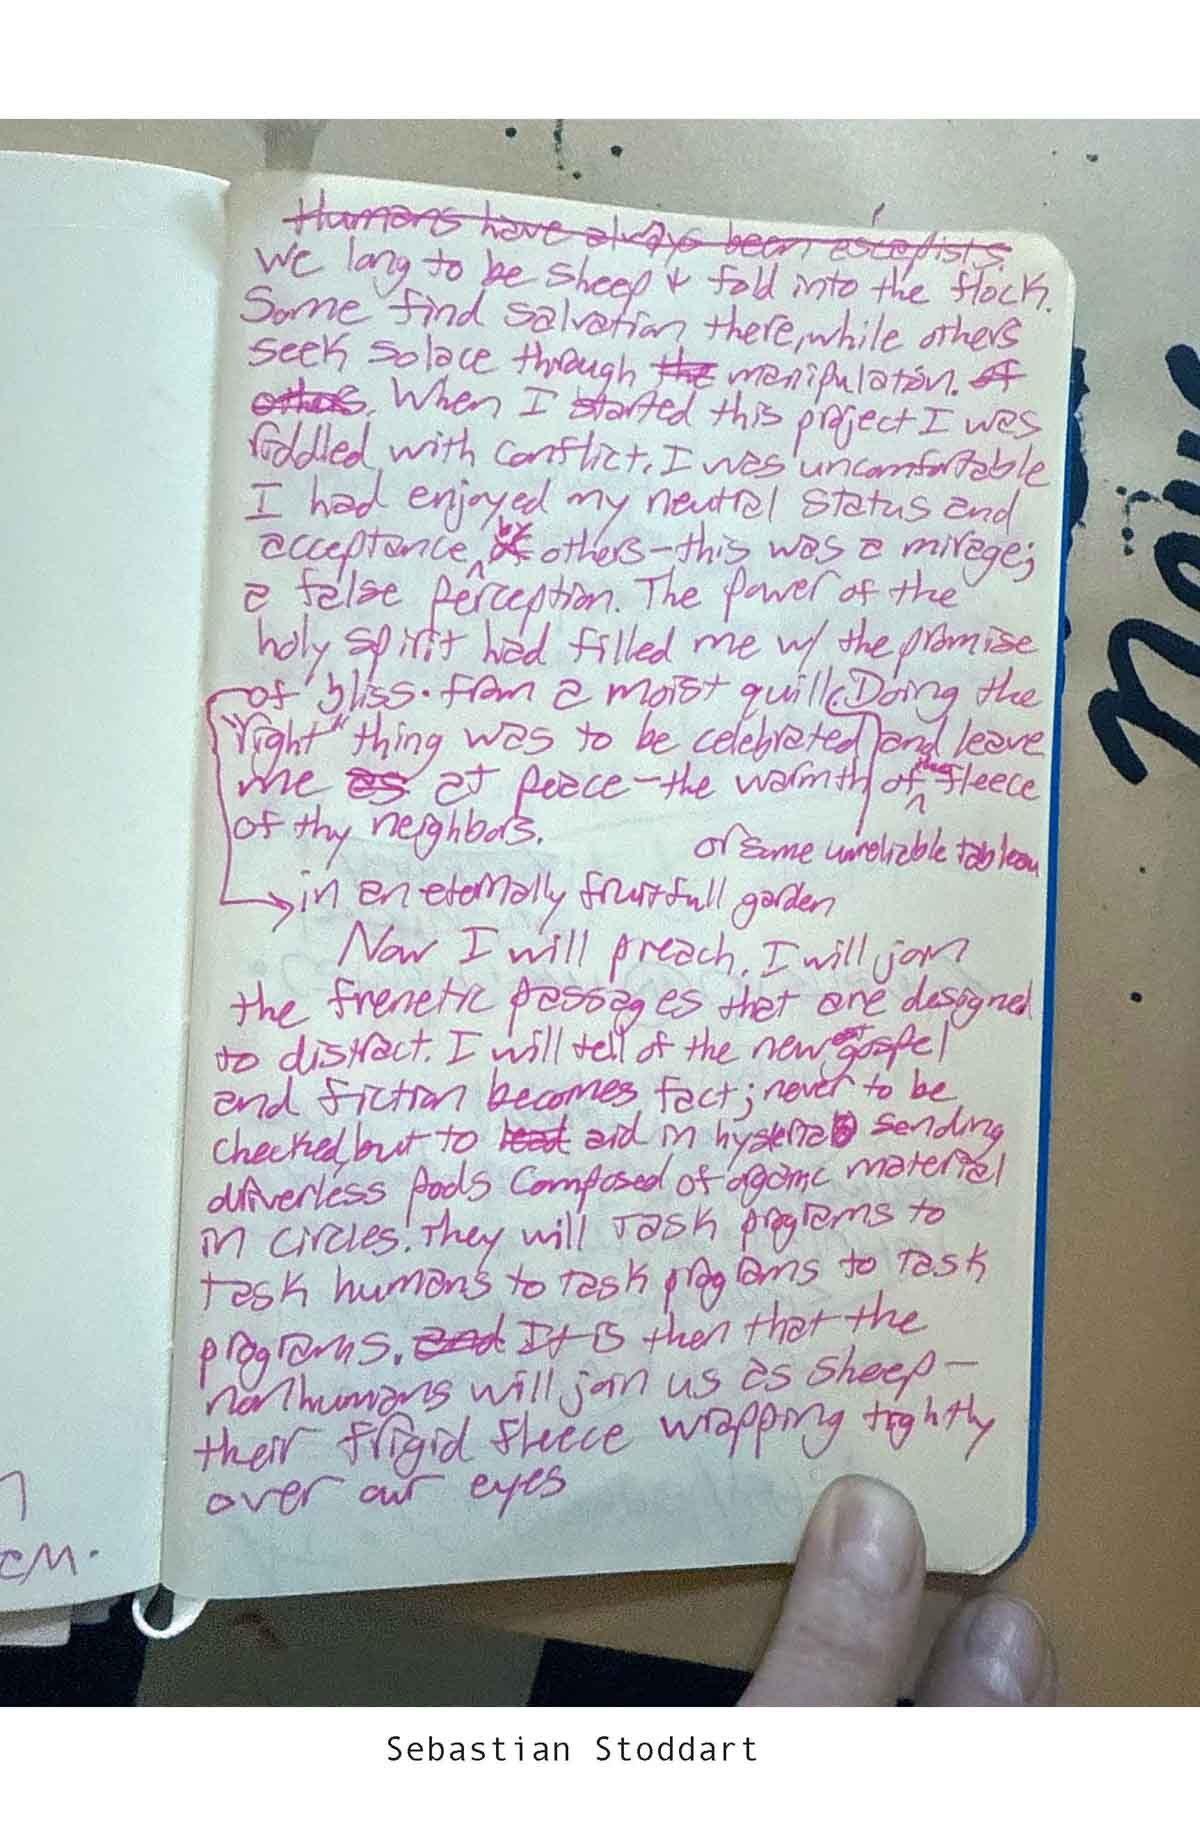 Humans have always been escapists.
We long to be sheep & fold into the flock.
Some find salvation there, while others
seek solace through the manipulation. of
others. When I started this project I was
riddled with conflict. I was uncomfortable
I had enjoyed my neutral status and
acceptance by others—this was a mirage;
a false perception. The power of the
holy spirit had filled me w/ the promise
of bliss. from a moist quill. Doing the
"right" thing was to be celebrated and leave
me as at peace—the warmth of the fleece
of thy neighbors.
or some unreliable tableau
in an eternally fruitfull garden
Now I will preach. I will join
the frenetic passages that are designed
to distract. I will tell of the new gospel
and fiction becomes fact; never to be
checked, but to lead aid in hysteria sending
driverless pods composed of organic material
in circles. They will task programs to
task humans to task programs to task
programs. and It is then that the
nonhumans will join us as sheep—
their frigid fleece wrapping tightly
over our eyes
cm.
Now
Sebastian Stoddart